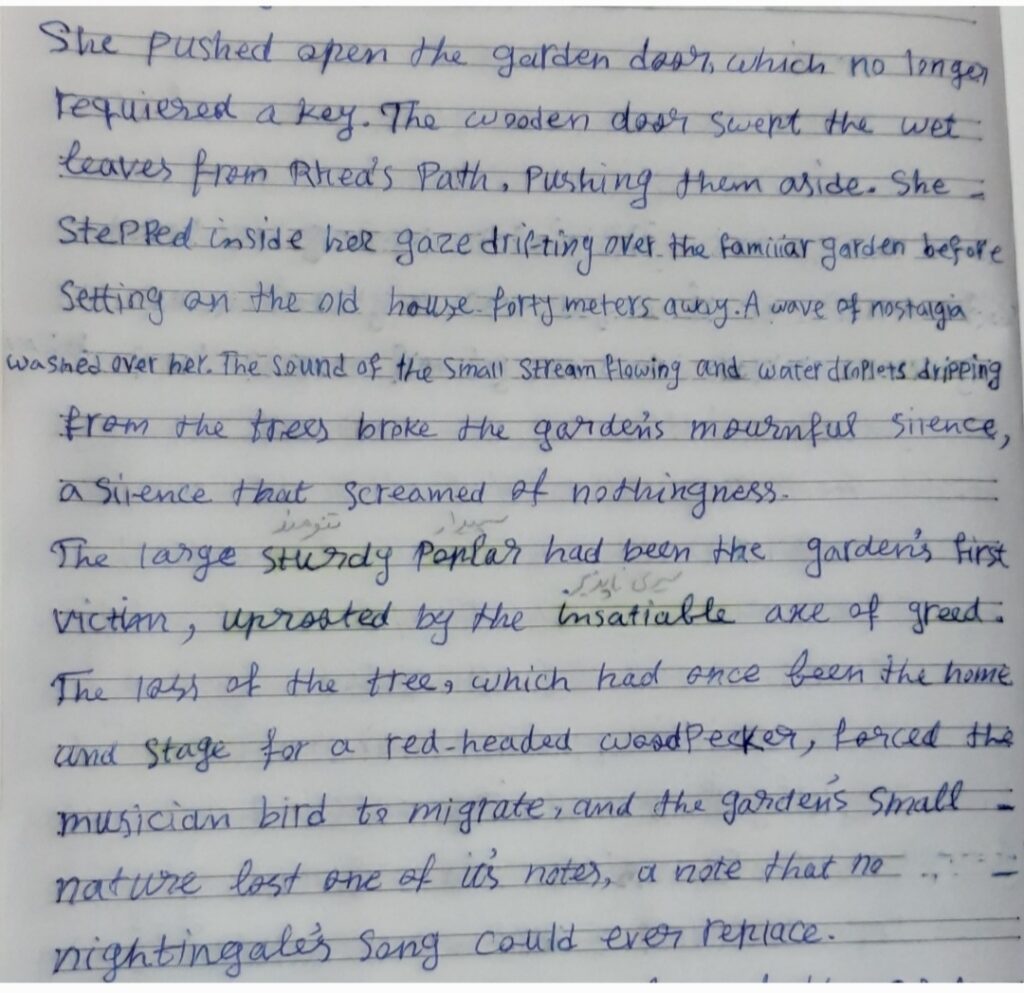 She pushed open the garden door, which no longer
requiered a key. The wooden door swept the wet
leaves from Rhea's Path, Pushing them aside. She
Stepped inside her gaze drifting over the familiar garden before
Setting on the old house forty meters away. A wave of nostalgia
washed over her. The Sound of the Small Stream flowing and water droplets dripping
from the trees broke the garden's mournful silence,
a Silence that screamed of nothingness.
تنومند سپیدار
The large sturdy Poplar had been the garden's first
سیری ناپذیر
victim, uprooted by the Insatiable axe of greed.
The loss of the tree, which had once been the home
and Stage for a red-headed woodpecker, forced the
musician bird to migrate, and the garden's Small
nature lost one of it's notes, a note that no
nightingale's Song could ever replace.